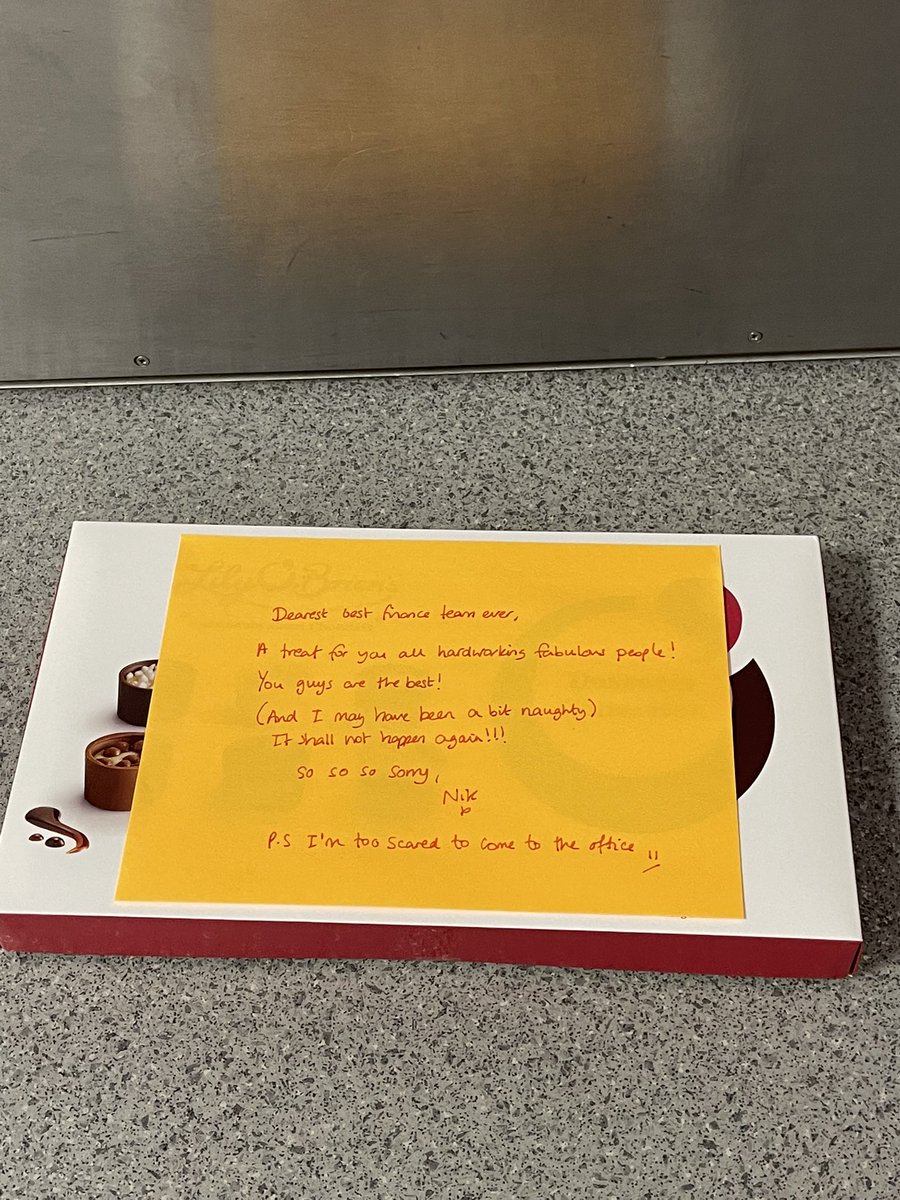 Lily O'Brien's
Dearest best finance team ever,
A treat for you all hardworking fabulous people!
You guys are the best!
(And I may have been a bit naughty)
It shall not happen again!!!
so so so sorry,
Nik
P.S I'm too scared to come to the office